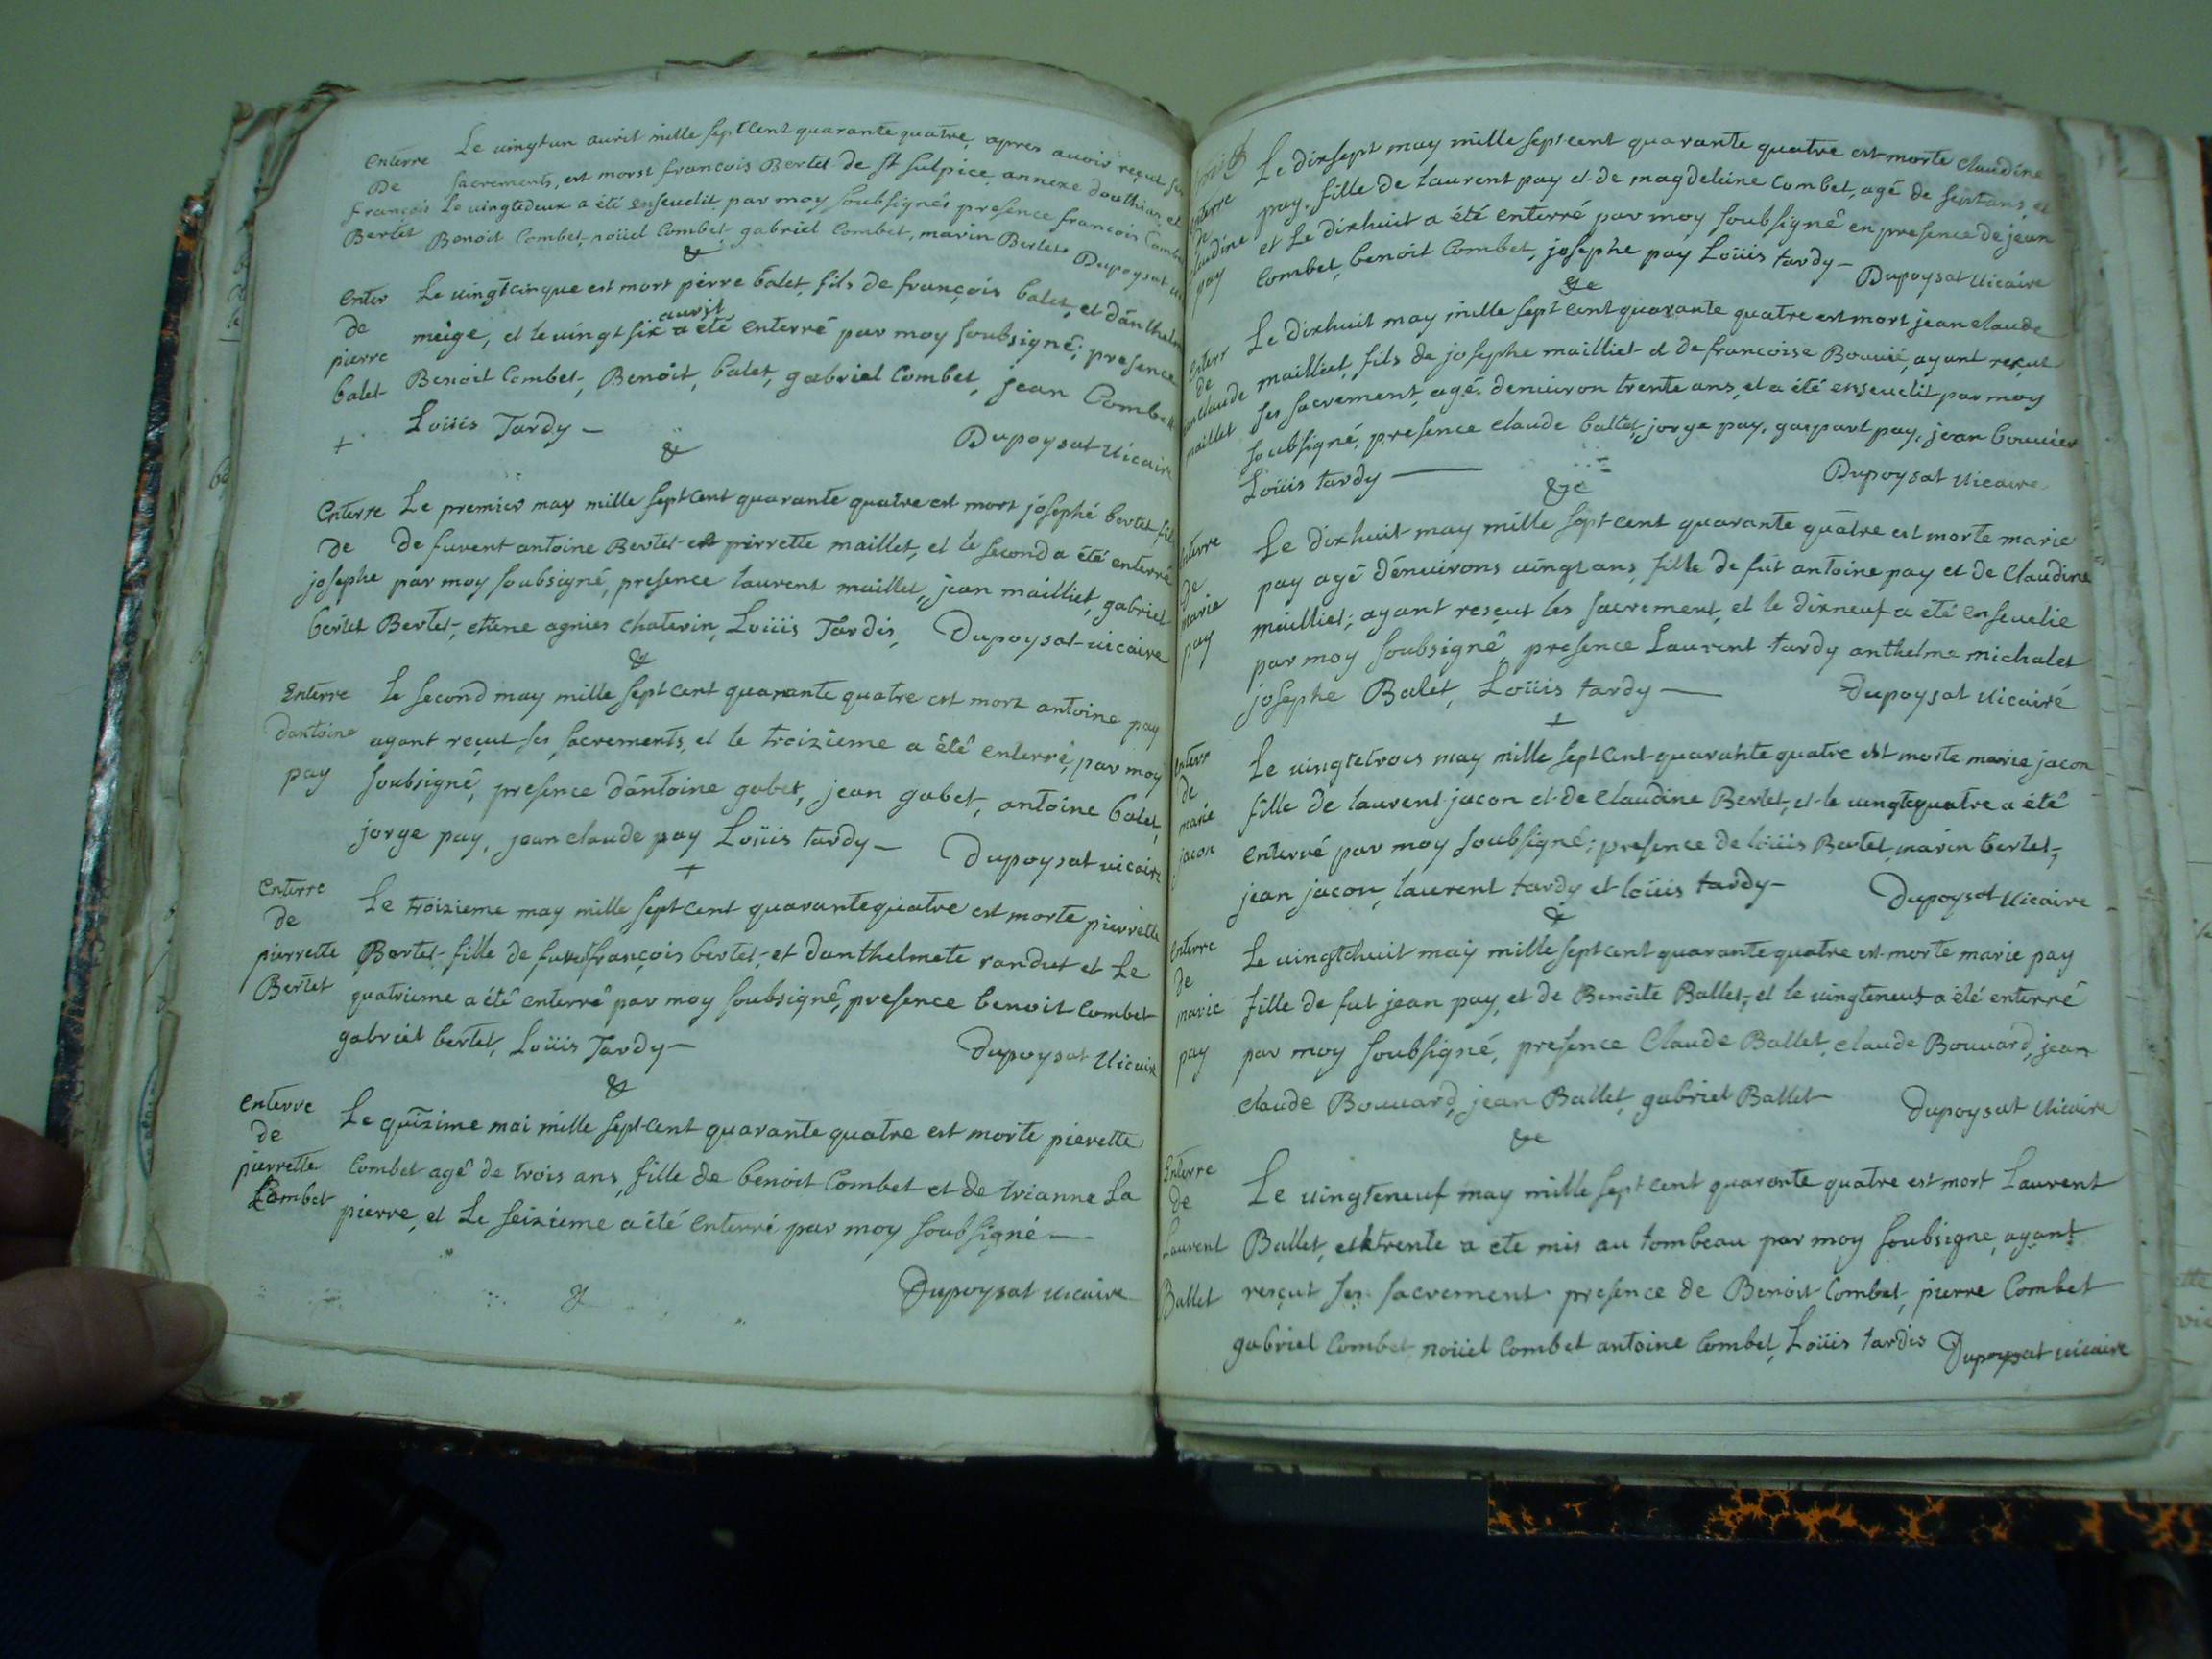 Le vingtun avril mille sept cent quarante quatre, apres avoir reçut ses
sacrements, est morst francois Bertet de st sulpice annexe douthian, et
Le vingtedeux a été enseuelit par moy soubsignés presence francois Combet
Benoit Combet, noüel Combet gabriel Combet, marin Bertet Dupoysat
enterre
De
françois
Bertet
&
Le vingtcinque est mort pierre balet, fils de françois balet, et d'anthelm
avrit
meige, et le vingt six a été enterré par moy soubsigné; presence
Benoit Combet, Benoit, balet, gabriel Combet, jean Combet
Loüis Tardy —
Dupoysat vicaire
enter
de
pierre
balet
+
&
Le premier may mille sept cent quarante quatre est mort josephé bertet fils
de fuvent antoine Bertet et pierrette maillet, et le second a été enterré
par moy soubsigné, presence laurent maillet, jean mailliet, gabriel
Bertet, etiene agnies chaterin, Loüis Tardis, Dupoysat vicaire
enterre
de
josephe
bertet
&
Le second may mille sept cent quarante quatre est mort antoine pay
ayant reçut ses sacrements, et le troizieme a été enterré, par moy
soubsigné, presence d'antoine gabet, jean gabet, antoine balet,
jorge pay, jean claude pay Loüis tardy — Dupoysat vicaire
Enterre
dantoine
pay
+
Le troizieme may mille sept cent quarantequatre est morte pierrette
Bertet fille de françois bertet, et danthelmete randut et Le
quatrieme a été enterré par moy soubsigné, presence benoit Combet
gabriel bertet, Loüis Tardy — Dupoysat Vicaire
enterre
de
pierrette
Bertet
&
Le quizime mai mille sept cent quarante quatre est morte pierette
Combet agé de trois ans, fille de benoit Combet et de trianne La
pierre, et Le seizieme a été enterré par moy soubsigné —
Dupoysat vicaire
enterre
de
pierrette
Combet
&
Le dixsept may mille sept cent quarante quatre est morte claudine
pay, fille de laurent pay et de magdeleine Combet, agé de septans, et
et Le dixhuit a été enterré par moy soubsigné en presence de jean
Combet, benoit Combet, josephe pay Loüis tardy — Dupoysat Vicaire
enterre
de
claudine
pay
&c
Le dixhuit may mille sept cent quarante quatre est mort jean claude
mailliet, fils de josephe mailliet et de francoise Bouvié, ayant reçut
ses sacrement, agé denviron trente ans, et a été enseuelit par moy
soubsigné, presence claude ballet, jorge pay, gaspart pay, jean bouvier
Loüis tardy — Dupoysat vicaire
enterr
de
jean claude
maillet
&c
Le dixhuit may mille sept cent quarante quatre est morte marie
pay agé d'environs vingt ans, fille de fût antoine pay et de Claudine
mailliet; ayant resçut les sacrement, et le dixneuf a eté enseuelie
par moy soubsigné, presence Laurent tardy anthelme michalet
josephe Balet, Loüis tardy — Dupoysat vicairé
Enterre
de
marie
pay
+
Le vingtetrois may mille sept cent quarante quatre est morte marie jacon
fille de laurent jacon et de claudine Bertet, et le vingtequatre a été
enterré par moy soubsigné; presence de loüis Bertet, marin bertet,
jean jacon, laurent tardy et loüis tardy — Dupoysat Vicaire
enterr
de
marie
jacon
&
Le vingtehuit maÿ mille sept cent quarante quatre est morte marie pay
fille de fut jean pay, et de Benoite Ballet, et le vingteneuf a été enterré
par moy soubsigné, presence Claude Ballet, claude Bouvard, jean
claude Bouvard, jean Ballet, gabriel Ballet — Dupoysat vicaire
enterre
de
marie
pay
&c
Le vingteneuf may mille sept cent quarante quatre est mort Laurent
Ballet, et le trente a ete mis au tombeau par moy soubsigne, ayant
resçut ses sacrement presence de Benoit Combet, pierre Combet
gabriel Combet noüel Combet antoine Combet, Loüis tardis Dupoysat vicaire
Enterre
de
Laurent
Ballet